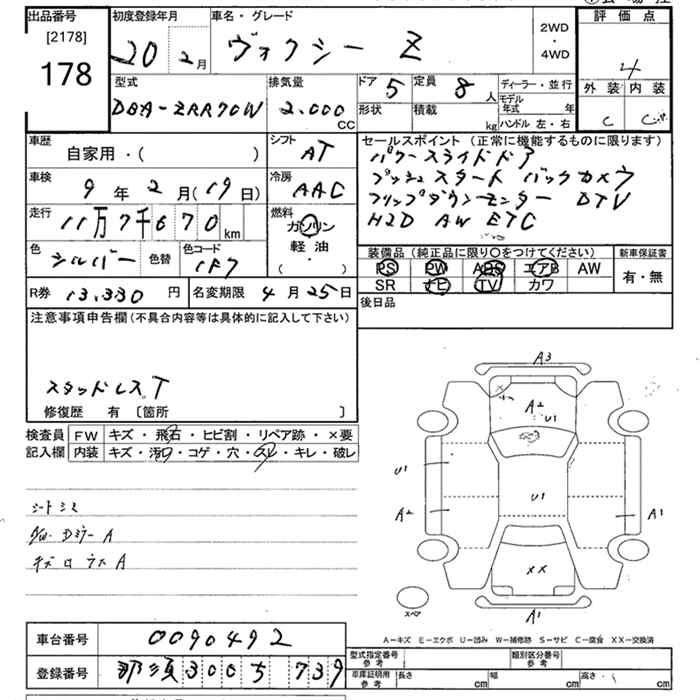 出品番号 初度登録年月 車名・グレード 評価点
[2178] 20 2月 ヴォクシー Z 2WD・4WD 4
178
型式 排気量 ドア 5 定員 8人 ディーラー・並行 外装 内装
DBA-ZRR70W 2.000CC 形状 積載 kg モデル年式 年 C C
ハンドル 左・右
車歴 シフト セールスポイント (正常に機能するものに限ります)
自家用・( ) AT パワースライドドア
車検 冷房 プッシュスタート バックカメラ
9年2月(19日) AAC フリップダウンモニター DTV
走行 燃料 HID AW ETC
11万7千670km ガソリン
色 色替 色コード 軽油・
シルバー 1F7 ( )
装備品 (純正品に限り○をつけてください) 新車保証書
PS PW ABS エアB AW 有・無
SR ナビ TV カワ
R券 13,330円 名変期限 4月25日 後日品
注意事項申告欄(不具合内容等は具体的に記入して下さい)
スタッドレスT
修復歴 有 〔箇所 〕
検査員 FW キズ・飛石・ヒビ割・リペア跡・×要
記入欄 内装 キズ・汚れ・コゲ・穴・スレ・キレ・破レ
シートシミ
Dミラー A
A
A3
A2
U1
U1
U1
A2
A1
XX
A1
スペア
A-キズ E-エクボ U-凹み W-補修跡 S-サビ C-腐食 XX-交換済
車台番号 0090492
登録番号 那須300ち739
型式指定番号 参考 類別区分番号 参考
車庫証明用 参考 長さ cm 幅 cm 高さ cm